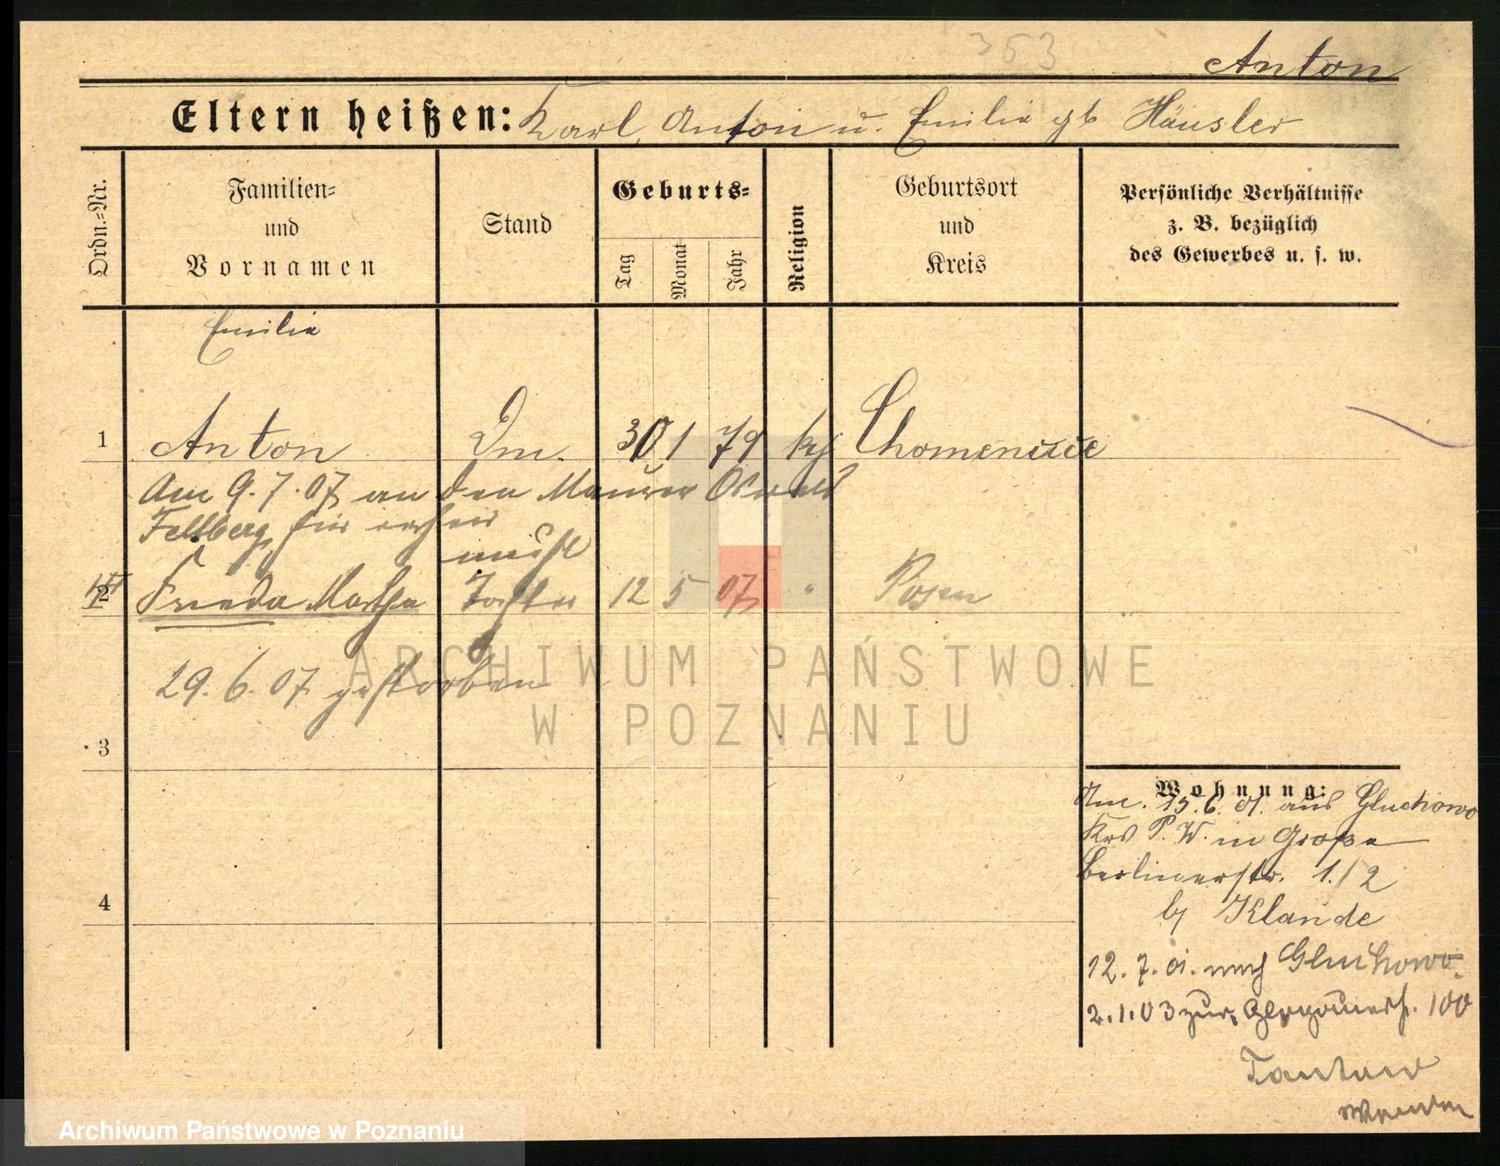 353
Anton
Eltern heißen: Karl Anton u. Emilie gb Häusler
Ordn.-Nr.
Familien- und Vornamen
Stand
Geburts-
Tag
Monat
Jahr
Religion
Geburtsort und Kreis
Persönliche Verhältnisse z. B. bezüglich des Gewerbes u. s. w.
Emilie
1 Anton Dm. 30 1 79 kh
Am 9. 7. 07 an den Maurer Oswald
Feltberg für
2 Frieda Martha Tochter 12 5 07 " Posen
29. 6. 07 gestorben
3
4
Wohnung:
Am. 15. 6. 01. aus Gluchowo
Krs P. W. in Große
Berlinerstr. 1/2
by Klande
12. 7. 01. nach Gluchowo.
2. 1. 03 zur. Glogauerst. 100
ARCHIWUM PAŃSTWOWE
W POZNANIU
Archiwum Państwowe w Poznaniu